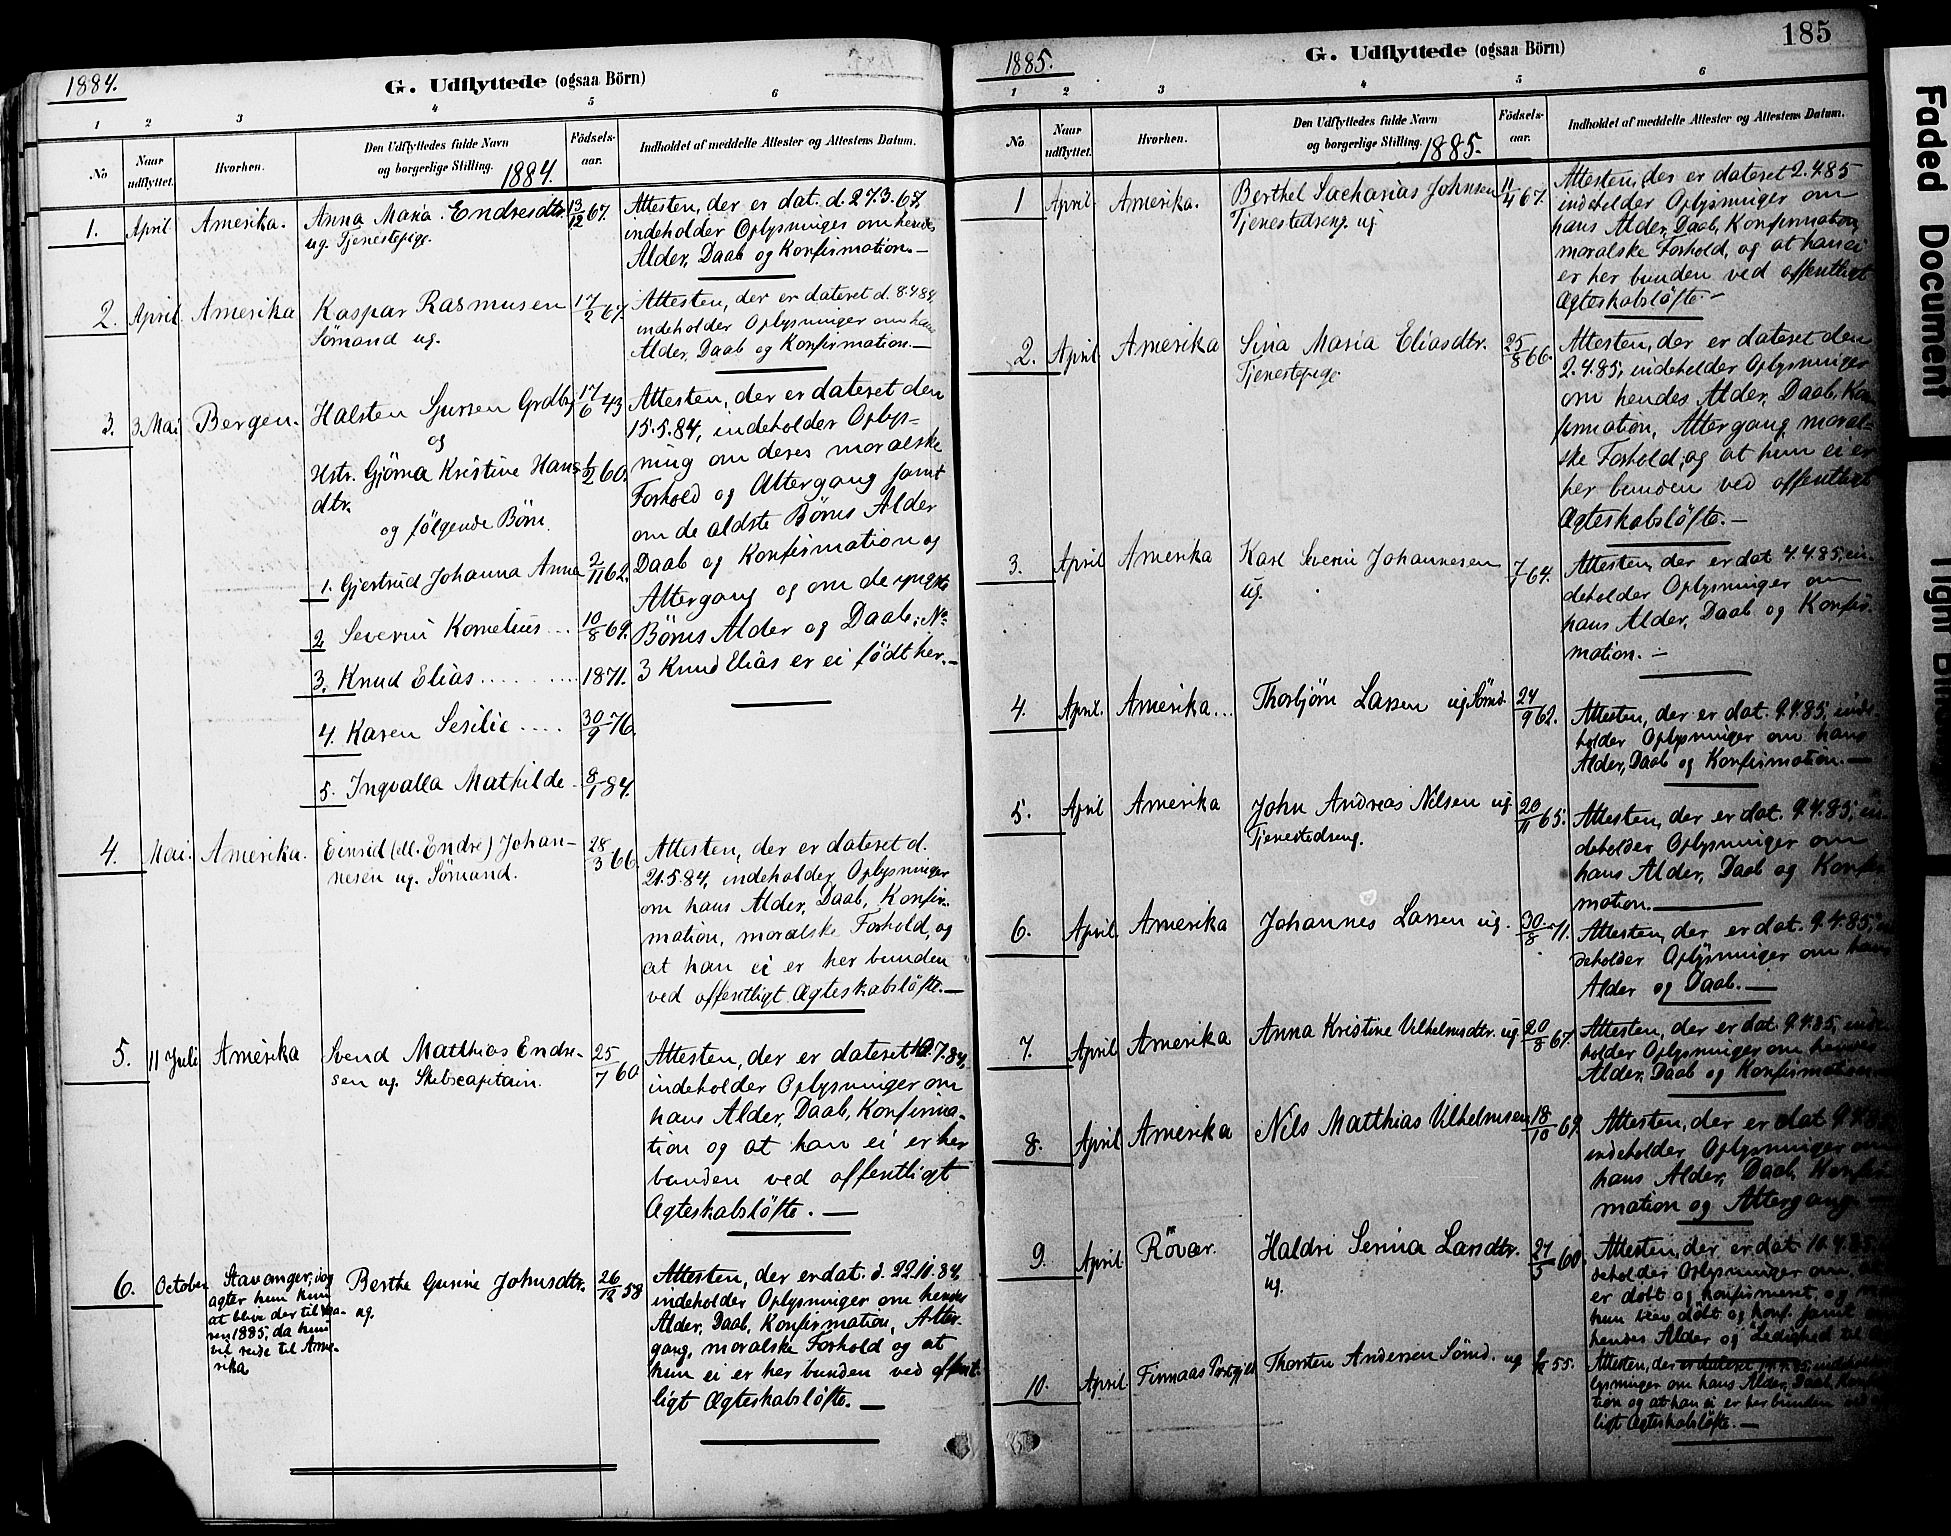 1884.
G. Udflyttede (ogsaa Börn)
1 2 3 4 5 6
No
Naar udflyttet.
Hvorhen.
Den Udflyttedes fulde Navn
og borgerlige Stilling. 1884.
Födsels-
aar.
Indholdet af meddelte Attester og Attestens Datum.
1. April Amerika. Anna Maria Endresdtr. 13/12 67.
ug. Tjenestepige.
Attesten, der er dat. d. 27.3.67,
indeholder Oplysninger om hendes
Alder, Daab og Konfirmation.—
2. April Amerika Kaspar Rasmusen 17/2 67.
Sömand ug.
Attesten, der er dateret d. 8.4.84,
indeholder Oplysninger om hans
Alder, Daab og Konfirmation.—
3. 3 Mai Bergen. Halsten Sjursen 17/6 43
og
Hstr. Gjörna Kristine Hans-
dtr.
og fölgende Börn.
1. Gjertrud Johanna Anna 2/11 62.
2 Severin Kornelius ... 10/8 69.
3. Knud Elias ......... 1871.
4. Karen Sesilie ..... 30/9 76.
5. Ingvalla Mathilde 8/1 84.
Attesten, der er dateret den
15.5.84, indeholder Oplys-
ning om deres moralske
Forhold og Altergang samt
om de ældste Börns Alder
Daab og Konfirmation og
Altergang og om de yngste
Börns Alder og Daab; No
3 Knud Elias er ei født her.—
4. Mai. Amerika. Einrid (ell. Endre) Johan- 28/3 66.
nesen ug. Sömand.
Attesten, der er dateret d.
21.5.84, indeholder Oplysninger
om hans Alder, Daab, Konfir-
mation, moralske Forhold, og
at han ei er her bunden
ved offentligt Ægteskabslöfte.—
5. 11 Juli Amerika Svend Matthias Endre- 25/7 60
sen ug. Skibscaptain.
Attesten, der er dateret 10.7.84,
indeholder Oplysninger om
hans Alder, Daab, Konfirma-
tion og at han ei er her
bunden ved offentligt
Ægteskabslöfte.—
6. October Stavanger, dog
agter hun kun
at blive der til Vaa-
ren 1885, da hun
vil reise til Ame-
rika
Berthe Gurine Johnsdtr. 26/12 58
ug.
Attesten, der er dat. d. 22.10.84,
indeholder Oplysninger om hendes
Alder, Daab, Konfirmation, Alter-
gang, moralske Forhold og at
hun ei er her bunden ved offent-
ligt Ægteskabslöfte.—
185
1885.
G. Udflyttede (ogsaa Börn)
1 2 3 4 5 6
No
Naar udflyttet.
Hvorhen.
Den Udflyttedes fulde Navn
og borgerlige Stilling. 1885.
Födsels-
aar.
Indholdet af meddelte Attester og Attestens Datum.
1 April Amerika. Berthel Sacharias Johnsen 11/4 67.
Tjenestedreng ug
Attesten, der er dateret 2.4.85
indeholder Oplysninger om
hans Alder, Daab, Konfirmation,
moralske Forhold, og at han ei
er her bunden ved offentligt
Ægteskabslöfte.—
2. April Amerika Sina Maria Eliasdtr. 25/8 66.
Tjenestepige
Attesten, der er dateret den
2.4.85, indeholder Oplysninger
om hendes Alder, Daab, Kon-
firmation, Altergang, moral-
ske Forhold, og at hun ei er
her bunden ved offentligt
Ægteskabslöfte.—
3. April Amerika Karl Severin Johannesen 64.
ug.
Attesten, der er dat. 4.4.85, in-
deholder Oplysninger om
hans Alder, Daab og Konfir-
mation.—
4. April. Amerika... Thorbjörn Larsen ug Sömd. 24/9 62.
Attesten, der er dat. 9.4.85, inde-
holder Oplysninger om hans
Alder, Daab og Konfirmation.—
5. April Amerika John Andreas Nilsen ug 20/11 65.
Tjenestedreng.
Attesten, der er dat. 9.4.85, in-
deholder Oplysninger om
hans Alder, Daab og Konfir-
mation.—
6. April Amerika Johannes Larsen ug. 30/8 71.
Attesten, der er dat. 9.4.85, in-
deholder Oplysninger om hans
Alder og Daab.—
7. April Amerika Anna Kristine Vilhelmsdtr. ug 20/8 67.
Attesten, der er dat. 9.4.85, inde-
holder Oplysninger om hendes
Alder, Daab og Konfirmation
8. April Amerika Nils Matthias Vilhelmsen 18/10 69.
Attesten, der er dat 9.4.85
indeholder Oplysninger om
hans Alder, Daab, Konfir-
mation og Altergang
9. April Rövær. Haldri Serina Larsdtr. 60.
ug.
Attesten, der er dat. 10.4.85,
deholder Oplysninger om,
er döbt og konfirmeret, og
hun blev döbt og konf. samt
hendes Alder og Ledighed til
10. April Finnaas Thorsten Andersen Sömd. ug 55.
Attesten, der er dateret 14.4.85, indeholder
lysninger om hans Alder, Daab, Konfirma-
tion og at han ei er her bunden ved
ligt Ægteskabslöfte.—
Faded Document
Tight